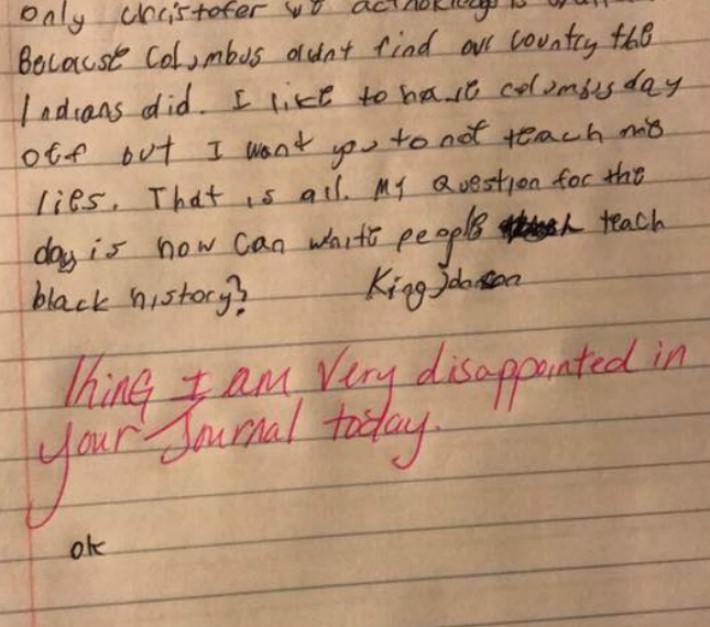 only christofer we
Because Columbus didnt find our country the
Indians did. I like to have columbus day
off but I want you to not teach me
lies. That is all. My Question for the
day is how can white people teach
black history? King Johnson
King I am Very disappointed in
your Journal today.
ok